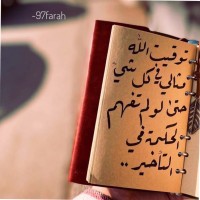 -97farah
توقيت الله
مثالي في كل شيء
حتى لو لم تفهم
الحكمة في
التأخير..